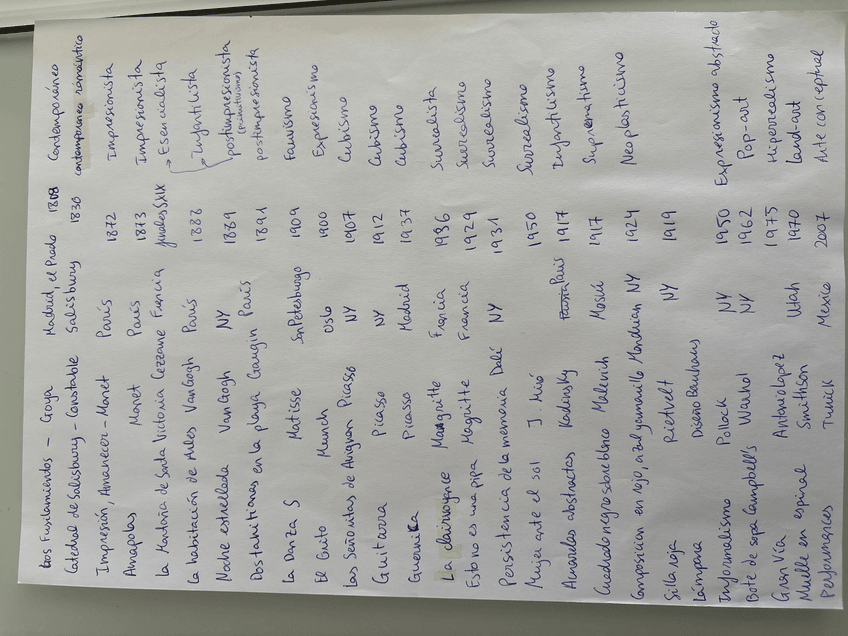 Los Fusilamientos - Goya Madrid, el Prado 1808 Contemporáneo
Catedral de Salisbury - Constable Salisbury 1830 contemporáneo romántico
Impresión, Amanecer - Monet París 1872 Impresionista
Amapolas Monet París 1873 Impresionista
La Montaña de Santa Victoria Cezzane Francia finales SXIX → Esencialista
La habitación de Arles Van Gogh París 1888 → Infantilista
Noche estrellada Van Gogh NY 1889 postimpresionista
Dos tahitianas en la playa Gaugin París 1891 postimpresionista
La Danza S Matisse San Petesburgo 1909 Fauvismo
El Grito Munch Oslo 1900 Expresionismo
Las Señoritas de Avignon Picasso NY 1907 Cubismo
Guitarra Picasso NY 1912 Cubismo
Guernika Picasso Madrid 1937 Cubismo
La clairvoyance Mangritte Francia 1936 Surrealista
Esto no es una pipa Magritte Francia 1929 Surrealismo
Persistencia de la memoria Dalí NY 1931 Surrealismo
Mujer ante el sol J. Miró 1950 Surrealismo
Amarelas abstractas Kadinsky París 1917 Infantilismo
Cuadrado negro sobre blanco Malevich Moskú 1917 Suprematismo
Composicion en rojo, azul y amarillo Mondrian NY 1924 Neoplasticismo
Silla roja Rietvelt NY 1919
Lámpara Diseño Bauhaus
Informalismo Pollock NY 1950 Expresionismo abstracto
Bote de sopa Campbell's Warhol NY 1962 Pop-art
Gran Vía Antonio Lopez 1975 Hiperrealismo
Muelle en espiral Smithson Utah 1970 Land-art
Performances Tunick Mexico 2007 Arte conceptual